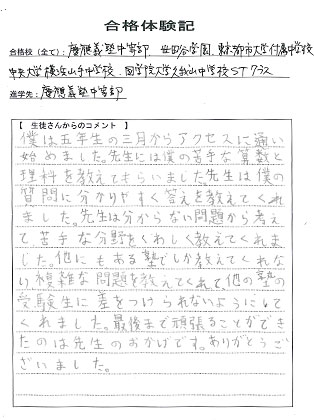 合格体験記
合格校（全て）：慶應義塾中等部 世田谷学園 東京都市大学付属中学校
中央大学横浜山手中学校 国学院大学久我山中学校STクラス
進学先：慶應義塾中等部
【 生徒さんからのコメント 】
僕は五年生の三月からアクセスに通い
始めました。先生には僕の苦手な算数と
理科を教えてもらいました。先生は僕の
質問に分かりやすく答えを教えてくれ
ました。先生は分からない問題から考え
て苦手な分野をくわしく教えてくれま
した。他にもある塾でしか教えてくれな
い複雑な問題を教えてくれて、他の塾の
受験生に差をつけられないようにして
くれました。最後まで頑張ることができ
たのは先生のおかげです。ありがとうご
ざいました。